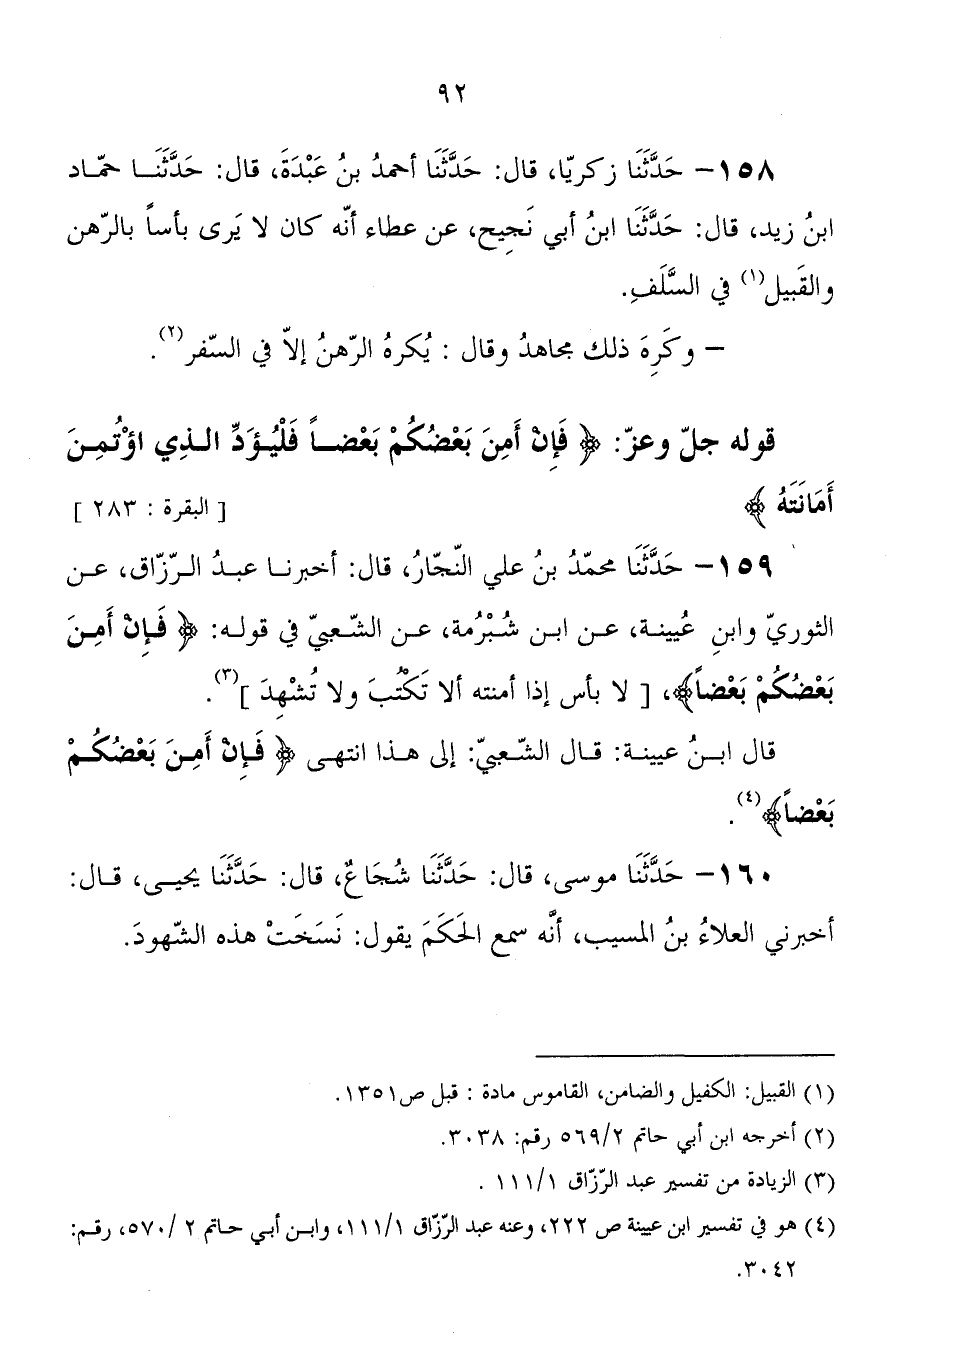 ٩٢
١٥٨- حَدَّثَنَا زكريّا، قال: حَدَّثَنَا أحمدُ بنُ عَبْدَةَ، قال: حَدَّثَنَا حمّاد
ابنُ زيد، قال: حَدَّثَنَا ابنُ أبي نَجِيح، عن عطاء أنّه كان لا يَرى بأساً بالرّهن
والقَبيل(١) في السَّلَفِ.
– وكَرِهَ ذلك مجاهدُ وقال : يُكرهُ الرّهنُ إلاّ في السّفر(٢).
قوله جلّ وعزّ: ﴿ فَإِنْ أَمِنَ بَعْضُكُمْ بَعْضاً فَلْيُؤَدِّ الذِي اؤْتُمِنَ
أَمَانَتَهُ ﴾ [ البقرة : ٢٨٣ ]
١٥٩- حَدَّثَنَا محمّدُ بنُ علي النّجّارُ، قال: أخبرنا عبدُ الرّزّاق، عن
الثوريّ وابنِ عُيينة، عن ابن شُبْرُمة، عن الشّعبيّ في قوله: ﴿ فَإِنْ أَمِنَ
بَعْضُكُمْ بَعْضاً﴾، [ لا بأس إذا أمنته ألا تَكْتُبَ ولا تُشْهِدَ ](٣).
قال ابنُ عيينة: قال الشّعبيّ: إلى هذا انتهى ﴿ فَإِنْ أَمِنَ بَعْضُكُمْ
بَعْضاً﴾(٤).
١٦٠- حَدَّثَنَا موسى، قال: حَدَّثَنَا شُجَاعٌ، قال: حَدَّثَنَا يحيى، قال:
أخبرني العلاءُ بنُ المسيب، أنَّه سمع الحَكَمَ يقول: نَسَخَتْ هذه الشّهودَ.
(١) القبيل: الكفيل والضامن، القاموس مادة : قبل ص١٣٥١.
(٢) أخرجه ابن أبي حاتم ٥٦٩/٢ رقم: ٣٠٣٨.
(٣) الزيادة من تفسير عبد الرّزّاق ١١١/١ .
(٤) هو في تفسير ابن عيينة ص ٢٢٢، وعنه عبد الرّزّاق ١١١/١، وابن أبي حاتم ٢ /٥٧٠، رقم:
٣٠٤٢.